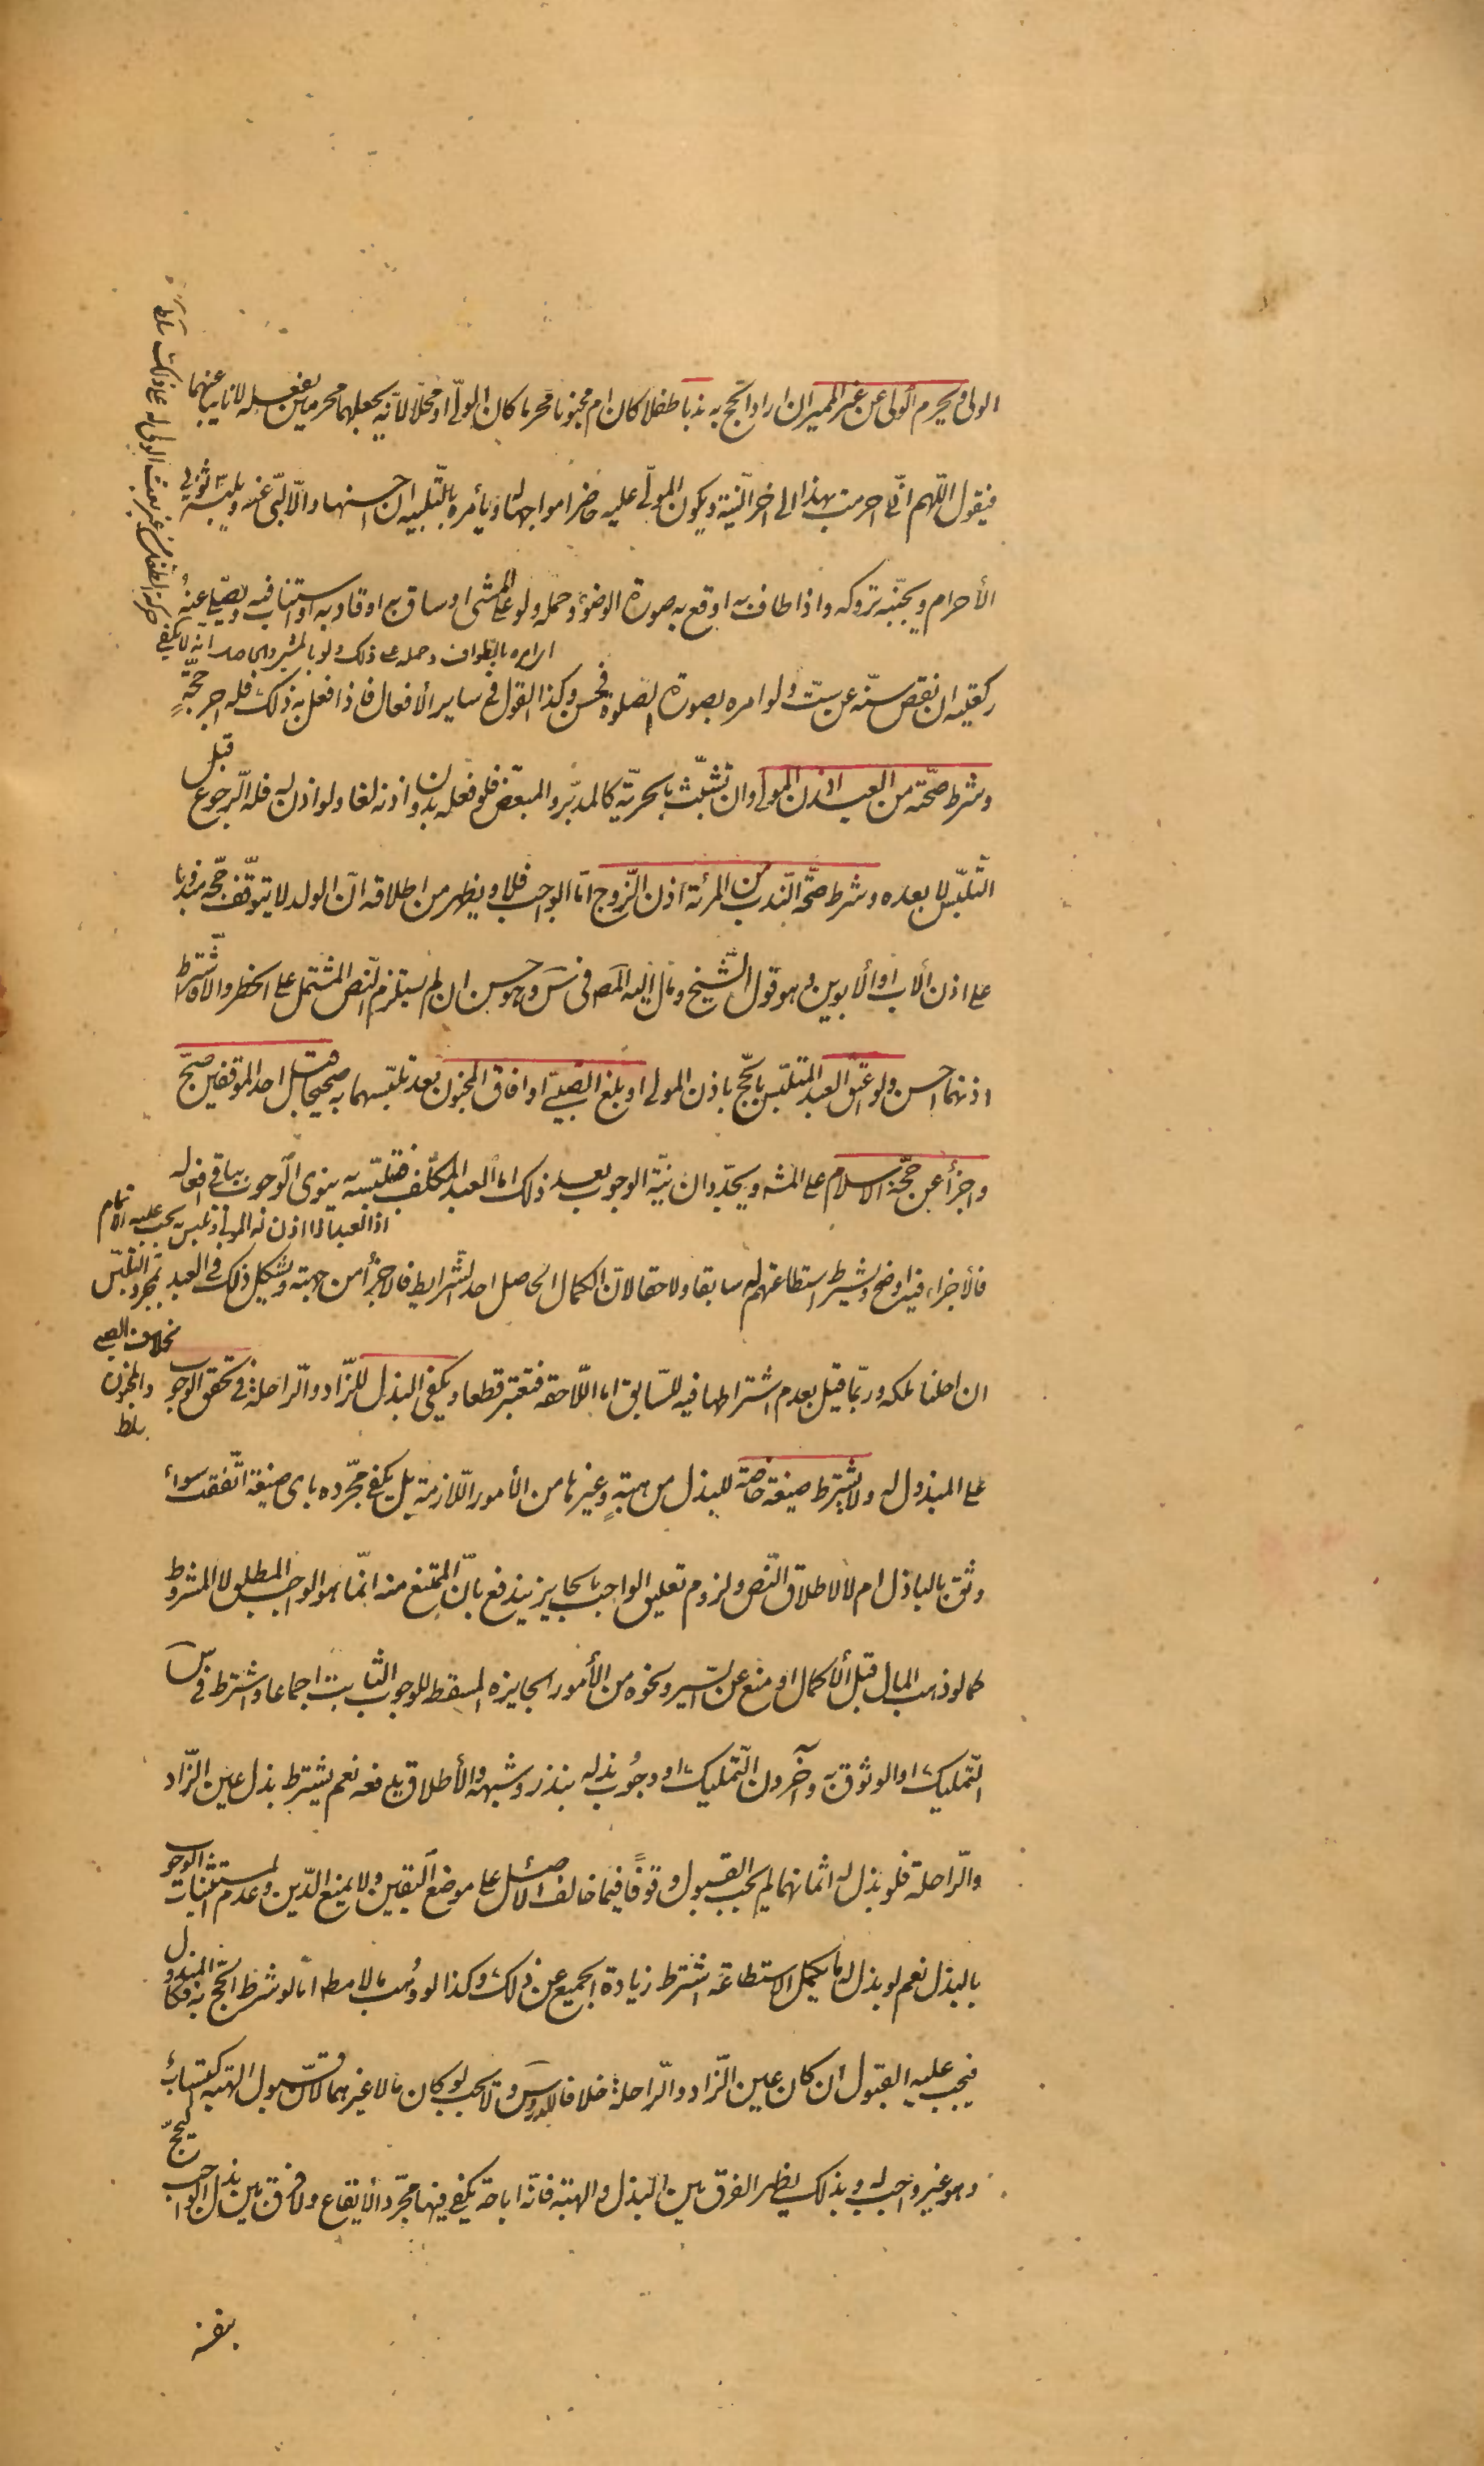 الولى ويحرم الولى عن غير المميز ان اراد الحج به ندبا طفلا كان ام مجنونا محرما كان الولىّ او محلّا لانّه يجعلهما محرمين بفعله لا نايبا عنهما
فيقول اللّهم انّى احرمت بهذا الى اخر النّية ويكون المولّى عليه حاضرا مواجها له ويأمره بالتّلبيه ان احسنها والّا لبّى عنه ويلبسه ثوبى
الأحرام ويجنّبه تروكه واذا طاف به اوقع به صورة الوضوء وحمله ولو على المشى او ساق به او قاد به او استناب فيه ويصلّى عنه
امره بالطواف وحمله على ذلك ولو بالمشى والحاصل انه لا يكفى
حركة الطفل من غير بعث الولى له على ذلك سلطان
ركعتيه ان نقص سنّه عن ستّ ولو امره بصورة الصّلوة فحسن وكذا القول فى ساير الأفعال فاذا فعل به ذلك فله اجر حجّةٍ
وشرط صحّته من العبد اذن المولى وان تشبّث بالحريّة كالمدبّر والمبعّض فلو فعله بدون اذنه لغا ولو اذن له فله الرّجوع قبل
التّلبّس لا بعده وشرط صحّة النّدب من المرئة اذن الزّوج امّا الواجب فلا ويظهر من اطلاقه انّ الولد لا يتوقّف حجّه مندوبا
على اذن الأب او الأبوين وهو قول الشّيخ ومال اليه المصَ فى سَ وهو حسن ان لم يستلزم النّص المشتمل على الخطر والّا فاشتراط
اذنهما احسن ولو اعتق العبد المتلبّس بالحّج باذن المولى او بلغ الصّبىّ او افاق المجنون بعد تلبّسهما به صحيحا قبل احد الموقفين صحّ
واجزأ عن حجّة الاسلام على المشه ويجدّدان نيّة الوجوب بعد ذلك امّا العبد المكلّف فتلبّسه ينوى الوجوب بباقى افعاله
اذ العبد اذا اذن له المولى فتلبس يجب عليه الاتمام
فالأجزاء فيه اوضح ويشترط استطاعتهم له سابقا ولاحقا لانّ الكمال الحاصل احد الشّرايط فالاجزأ من جهته ويشكل ذلك فى العبد
بمجرد التلبّس بخلاف الصبى والمجنون سلط
ان احلنا ملكه وربّما قيل بعدم اشتراطها فيه للسّابق امّا اللّاحقه فتعتبر قطعا ويكفى البذل للزّاد والرّاحلة فى تحقق الوجوب
على المبذول له ولا يشترط صيغة خاصّة للبذل من هبةٍ وغيرها من الأمور اللّازمة بل يكفى مجّرده باى صيغة اتّفقت سواء
وثق بالباذل ام لا لاطلاق النّص ولزوم تعليق الواجب بالجايز يندفع بانّ الممتنع منه انّما هو الواجب المطلق لا المشروط
كما لو ذهب المال قبل الأكمال او منع عن السّير ونحوه من الأمور الجايزه المسقط للوجوب الثّابت اجماعا واشترط فى سَ
التّمليك او الوثوق به وآخرون التّمليك او وجُوب بذله بنذر وشبهه والأطلاق يدفعه نعم يشترط بذل عين الزّاد
والرّاحلة فلو بذل له اثمانهما لم يجب القبول وقوفًا فيما خالف الأصل على موضع اليقين ولا يمنع الدّين وعدم المستثنيات الوجوب
بالبذل نعم لو بذل له ما يكمل الاستطاعة اشترط زيادة الجميع عن ذلك وكذا لو وُهب مالا مطه امّا لو شرط الحّج به فكالمبذول
فيجب عليه القبول ان كان عين الزّاد والرّاحلة خلافا للدروس ولا يجب لو كان مالا غيرهما لانّ قبول الهبه اكتسابُ
وهو غير واجب له وبذلك يظهر الفرق بين البذل والهبة فانّه اباحة يكفى فيها مجّرد الأيقاع ولا فرق بين بذل الواجب ليحجّ
بنفسه